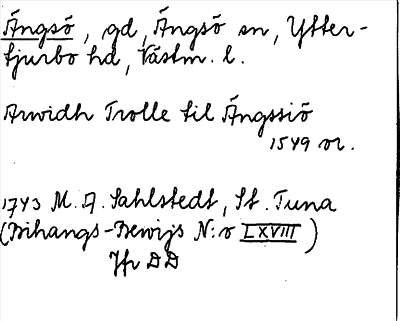 Ängsö, gd, Ängsö sn, Ytter-
tjurbo hd, Västm. l.
Arwidh Trolle til Ängssiö
1549 or.
1743 M. A. Sahlstedt, St. Tuna
(Bihangs-Bewijs N:o LXVIII)
Jfr DD